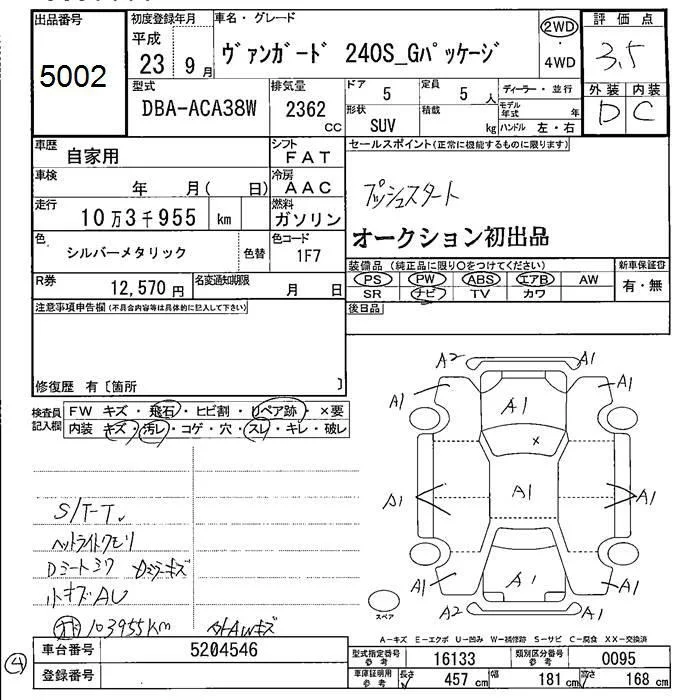 出品番号
5002
初度登録年月
平成
23 9月
車名・グレード
ヴァンガード 240S_Gパッケージ
2WD
・
4WD
評価点
3.5
外装 内装
D C
型式
DBA-ACA38W
排気量
2362
CC
ドア
5
定員
5 人
形状
SUV
積載
kg
ディーラー・並行
モデル年式 年
ハンドル 左・右
車歴
自家用
シフト
FAT
車検
年 月( 日)
冷房
AAC
走行
10万3千955 km
燃料
ガソリン
色
シルバーメタリック
色替
色コード
1F7
R券
12,570 円
名変通知期限
月 日
セールスポイント(正常に機能するものに限ります)
プッシュスタート
オークション初出品
装備品 (純正品に限り○をつけてください)
PS PW ABS エアB AW
SR ナビ TV カワ
新車保証書
有・無
後日品
注意事項申告欄(不具合内容等は具体的に記入して下さい)
修復歴 有〔箇所 〕
検査員
記入欄
FW キズ・飛石・ヒビ割・リペア跡・×要
内装 キズ・汚レ・コゲ・穴・スレ・キレ・破レ
S/T-T
ヘットライトクモリ
Dミラーキズ
小キズAU
103955km
外AWキズ
A2 A1
A1 A1
A1
×
A1 A1 A1
A1 A1 A1
A2 A1
スペア
A-キズ E-エクボ U-凹み W-補修跡 S-サビ C-腐食 XX-交換済
4
車台番号
5204546
登録番号
型式指定番号
参考
16133
類別区分番号
参考
0095
車庫証明用
参考
長さ
457 cm
幅
181 cm
高さ
168 cm